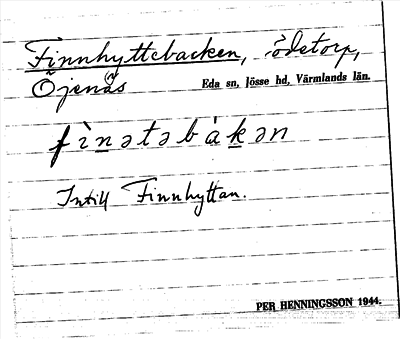 Finnhyttebacken, ödetorp,
Öjenäs Eda sn, Jösse hd, Värmlands län.
fìnətəbàkən
Intill Finnhyttan.
PER HENNINGSSON 1944.